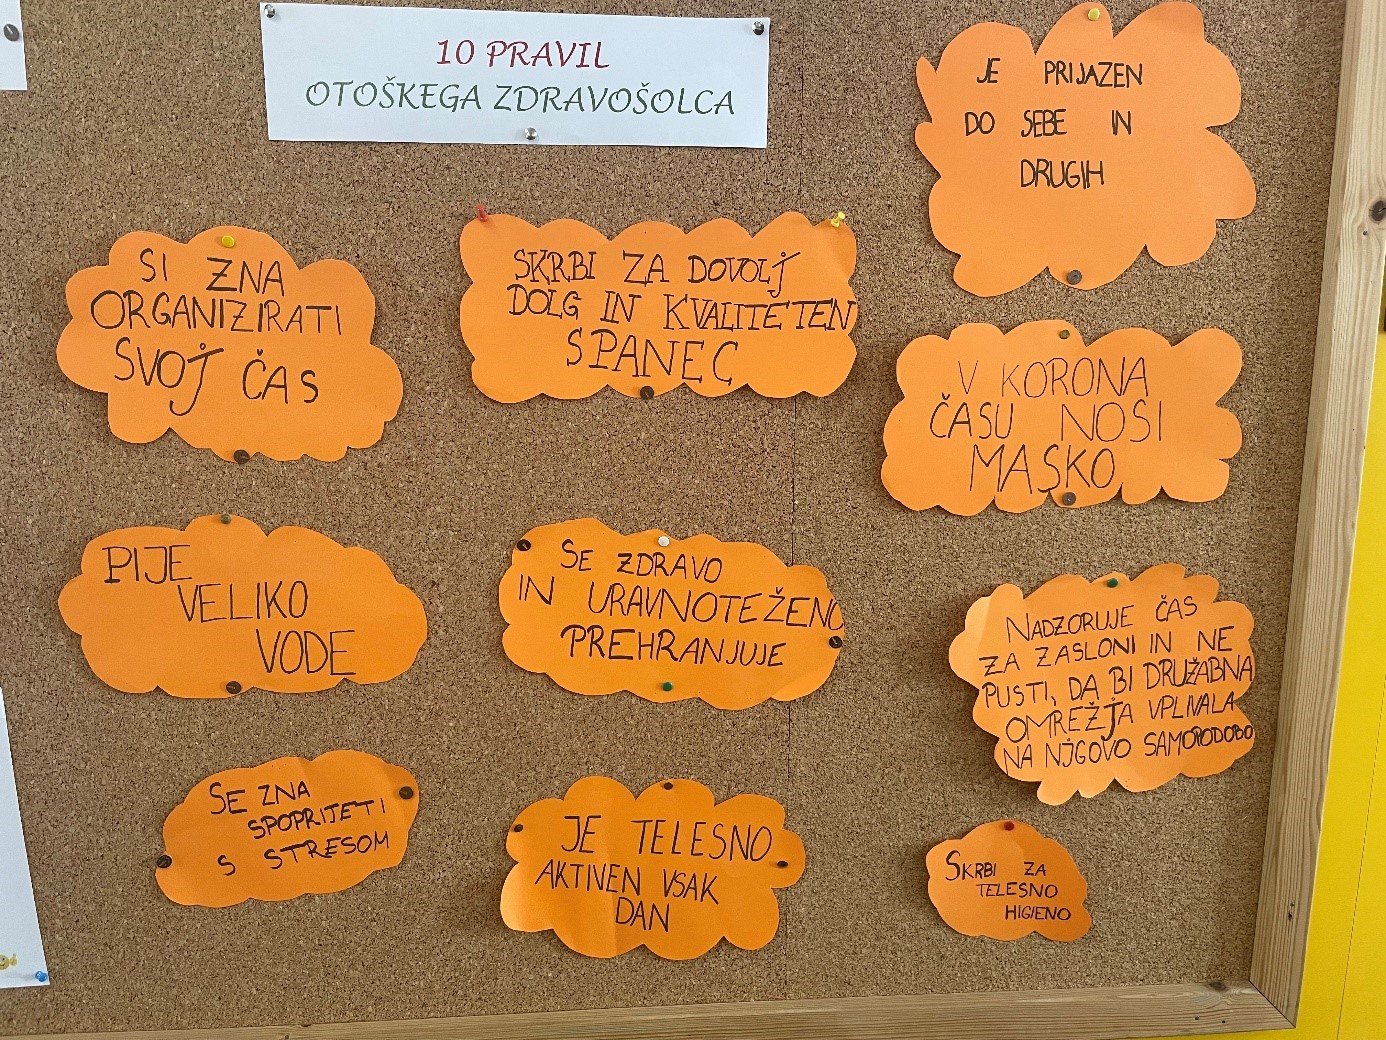 10 PRAVIL
OTOŠKEGA ZDRAVOŠOLCA
JE PRIJAZEN
DO SEBE IN
DRUGIH
SI ZNA
ORGANIZIRATI
SVOJ ČAS
SKRBI ZA DOVOLJ
DOLG IN KVALITETEN
SPANEC
V KORONA
ČASU NOSI
MASKO
PIJE
VELIKO
VODE
SE ZDRAVO
IN URAVNOTEŽENO
PREHRANJUJE
NADZORUJE ČAS
ZA ZASLONI IN NE
PUSTI, DA BI DRUŽABNA
OMREŽJA VPLIVALA
NA NJGOVO SAMOPODOBO
SE ZNA
SPOPRIJETI
S STRESOM
JE TELESNO
AKTIVEN VSAK
DAN
SKRBI ZA
TELESNO
HIGIENO